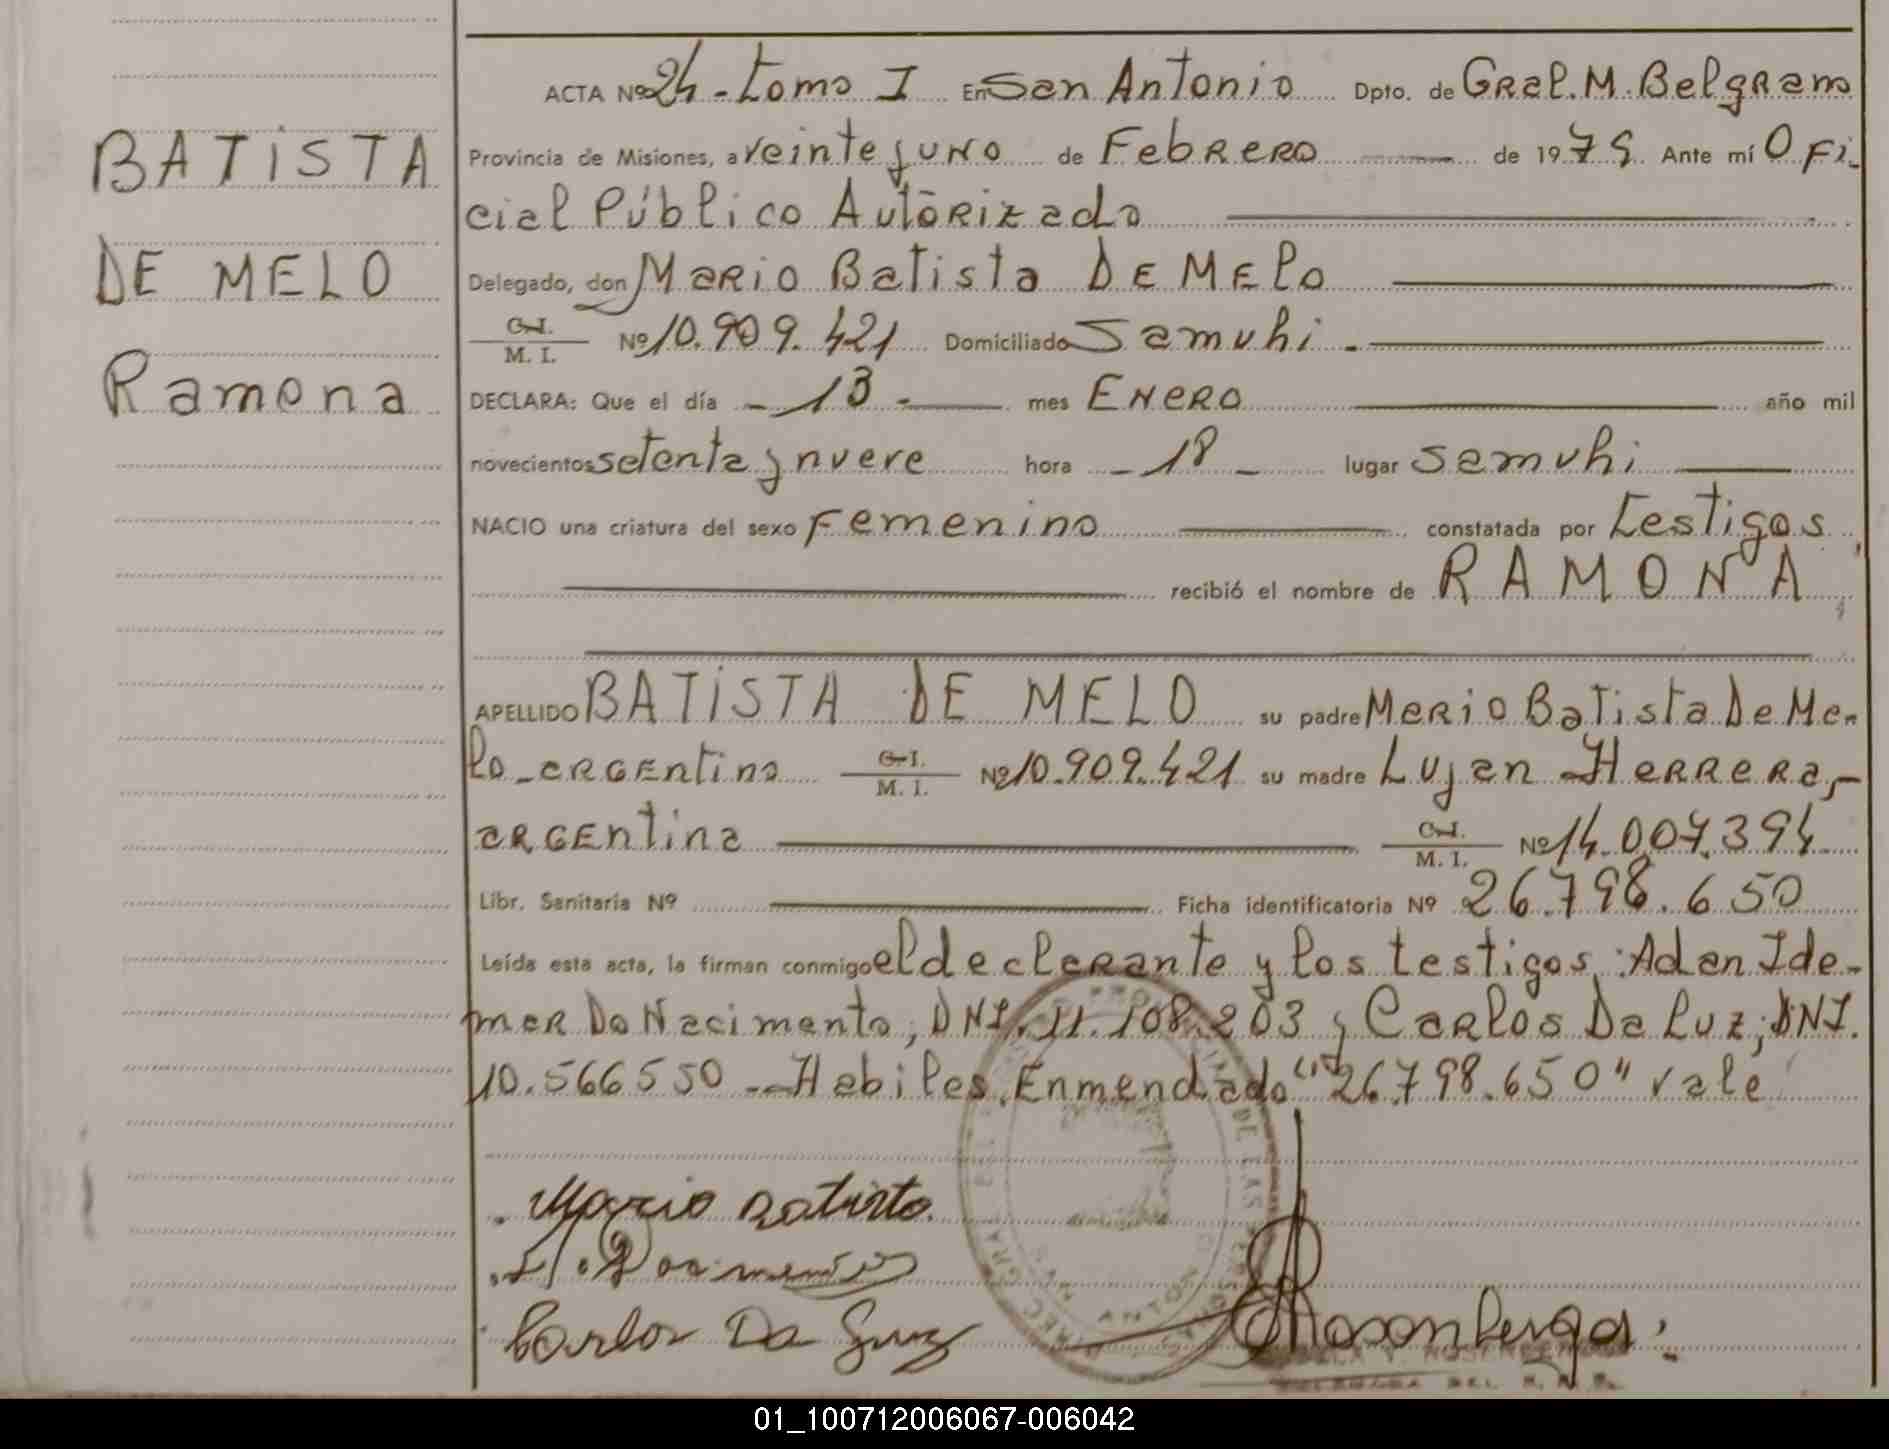 BATISTA
DE MELO
Ramona
ACTA Nº 24 - Tomo I En San Antonio Dpto. de GRal. M. Belgrano
Provincia de Misiones, a veinte y uno de Febrero de 1979. Ante mí Ofi-
cial Público Autorizado
Delegado, don Mario Batista DE MELO
C.I. M. I. Nº 10.909.421 Domiciliado Samuhi.-
DECLARA: Que el día - 13 - mes ENERO año mil
novecientos setenta y nueve hora - 18 - lugar Samuhi
NACIO una criatura del sexo Femenino constatada por Testigos,
recibió el nombre de RAMONA
APELLIDO BATISTA DE MELO su padre Mario Batista De Me-
lo - argentino C.I. M. I. Nº 10.909.421 su madre Lujan Herrera,-
argentina C.I. M. I. Nº 14.007.394
Libr. Sanitaria Nº Ficha identificatoria Nº 26.798.650
Leída esta acta, la firman conmigo el declarante y los testigos: Adan Ide-
mar Do Nacimento, DNI. 11.108.203 y Carlos Da Luz, DNI.
10.566550 - Habiles. Enmendado "26.798.650" vale
Mario Batista
Carlos Da Luz
01_100712006067-006042